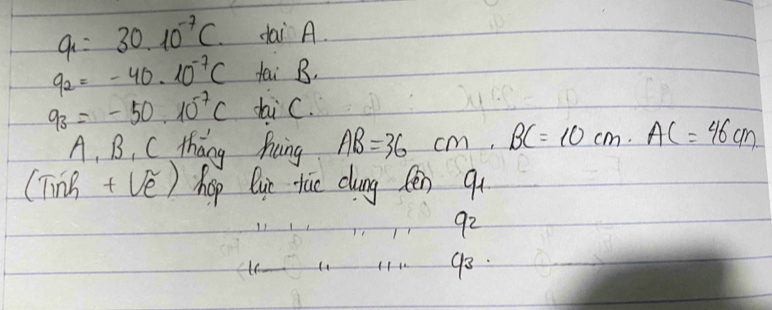 q1 = 30.10⁻⁷C. tại A.
q2 = - 40.10⁻⁷C tại B.
q3 = - 50.10⁻⁷C tại C.
A, B, C thẳng hàng AB = 36 cm, BC = 10 cm. AC = 46 cm
(Tính + Vẽ) hợp lực tác dụng lên q1
" " " " q2
" " " " q3.